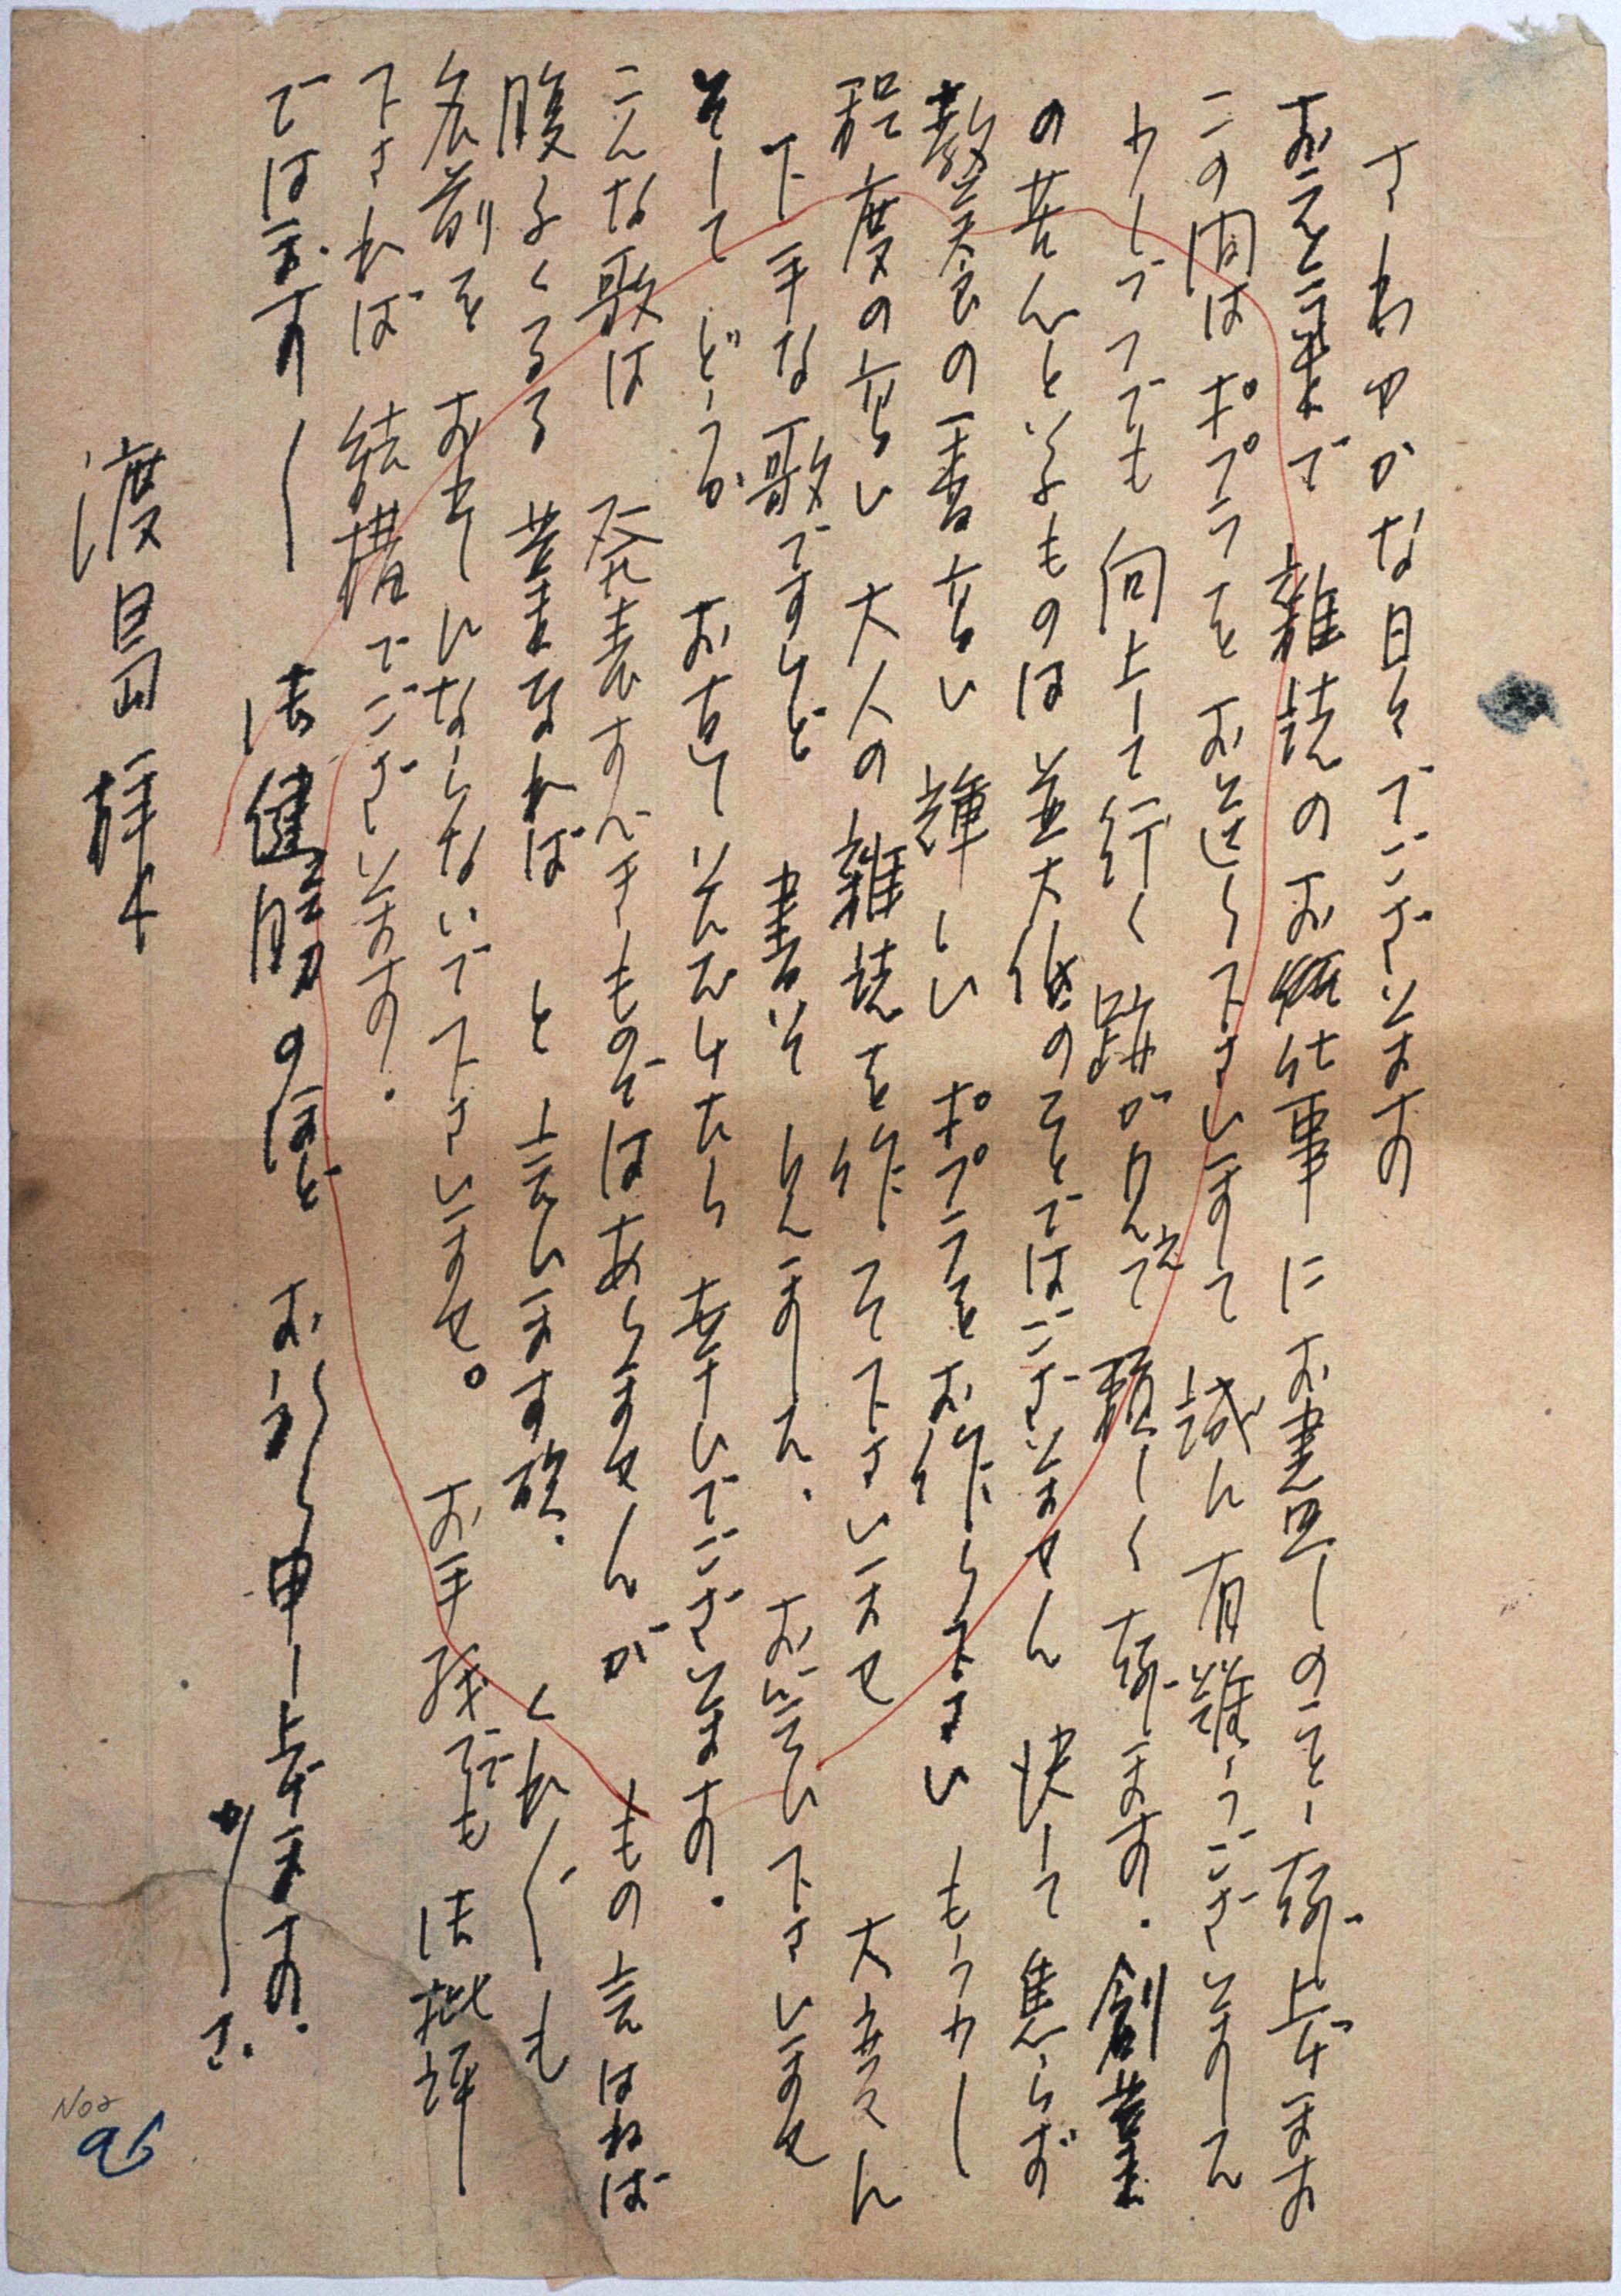 さわやかな日々でございます
お元気で 雑誌のお仕事にお尽しのことゝ存じ上げます
この間はポプラをお送り下さいまして 誠に有難うございました
少しづつでも向上して行く跡が見えて頼しく存じます．創業
の苦心と いふものは並大低のことではございません 決して焦らず
教養の書らしい輝しい ポプラをお作り下さい もう少し
程度の高い 大人の雑誌を作って下さいませ 大変に
下手な歌ですけど 書いて 見ました． お笑ひ下さいませ
そして どうか お直しいただけたら 幸ひでございます．
こんな歌は 発表すべきものではありませんが もの言はねば
腹ふくるる 業なれば と言ひます故． くれぐれも
名前を お出しにならないで下さいませ。 お手紙ででも 御批評
下されば 結構でございます．
ではまた 御健勝のほど お祈り申し上げます．
かしこ．
渡島 拝
No2
96